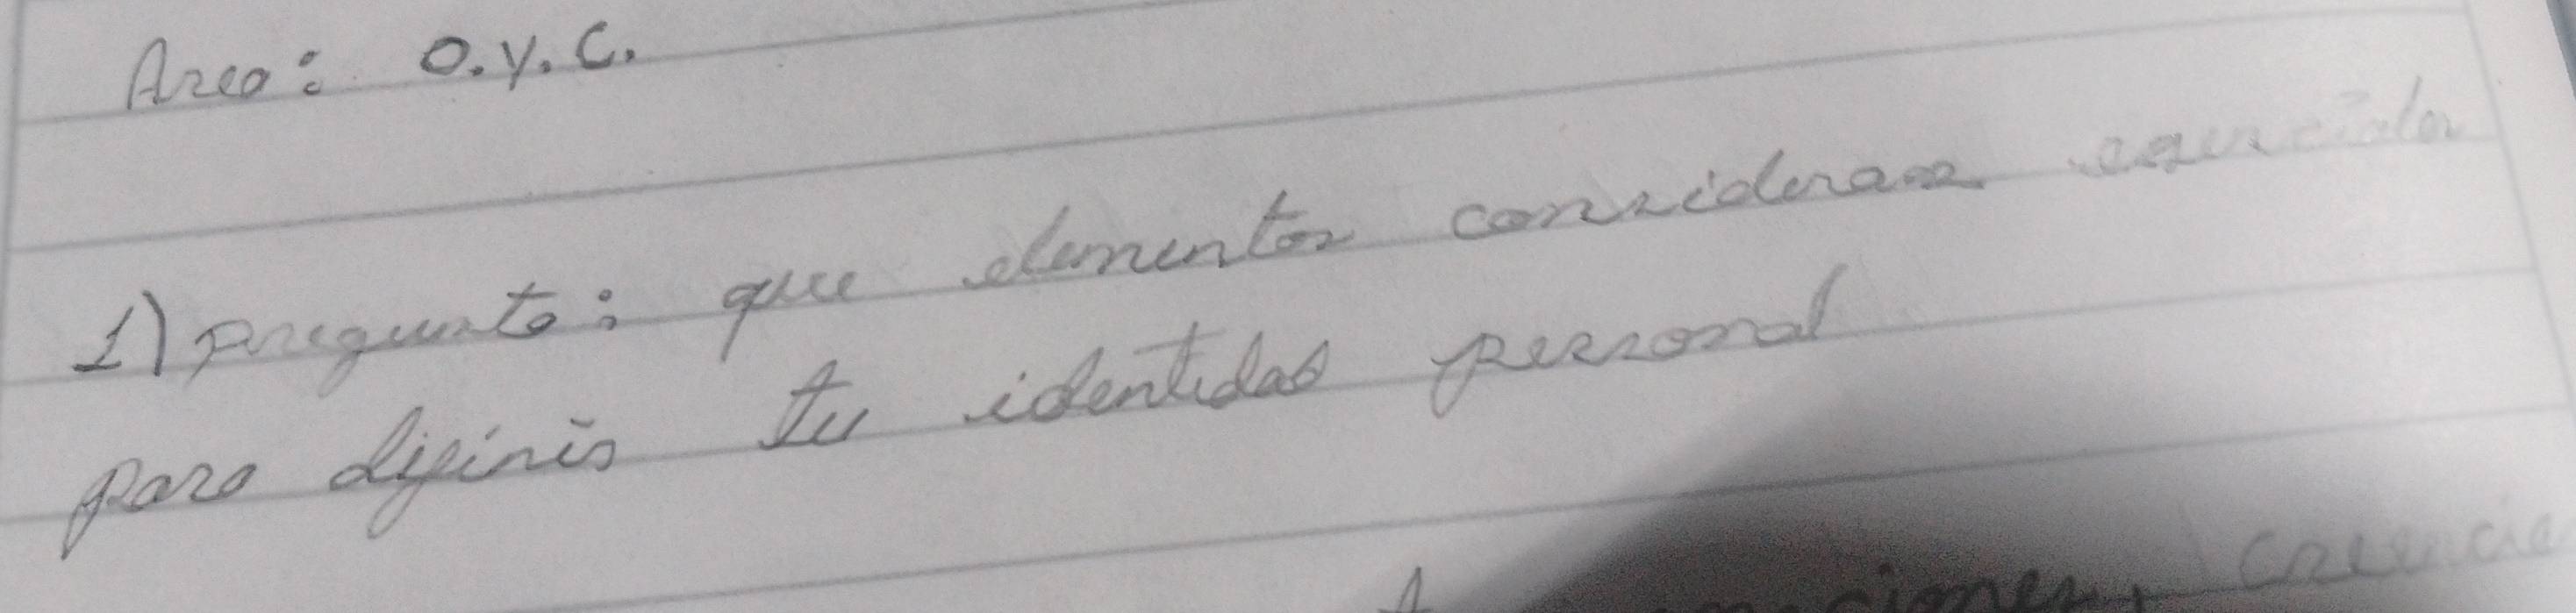 Area: O.y.C.
1) pregunta: que elementos consideras esenciales
para definir tu identidad personal
creencia